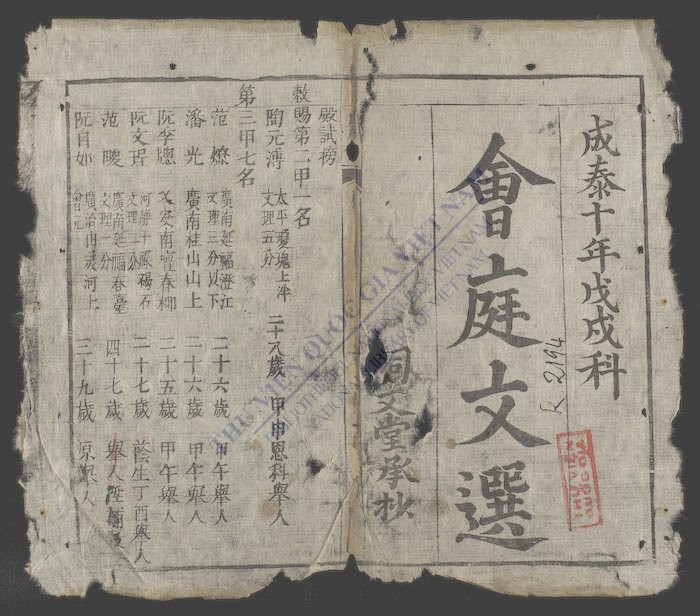 成泰十年戊戌科
會庭文選
同文堂承抄
殿試榜
敕賜第二甲一名
陶元溥 太平 上泮 文理五分 二十八歲 甲申恩科舉人
第三甲七名
范燎 廣南延福澄江 文理三分以下 二十六歲 甲午舉人
潘光 廣南桂山山上 二十六歲 甲午舉人
阮季 乂安南壇春柳 二十五歲 甲午舉人
阮文 河靜 石 文理 分 二十七歲 蔭生丁酉舉人
范㬢 廣南延福春臺 文理一分 四十七歲 舉人
阮 如 廣治 河上 會元 三十九歲 原舉人
R 2194
THƯ VIỆN QUỐC GIA VIỆT NAM
BIBLIOTHEQUE NATIONALE DU VIETNAM
NATIONAL LIBRARY OF VIETNAM